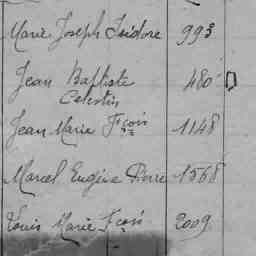 Marie Joseph Isidore 993
Jean Baptiste 480
Celestin
Jean Marie Fçois 1148
Marcel Eugène Pierre 1568
Louis Marie Fçois 2009